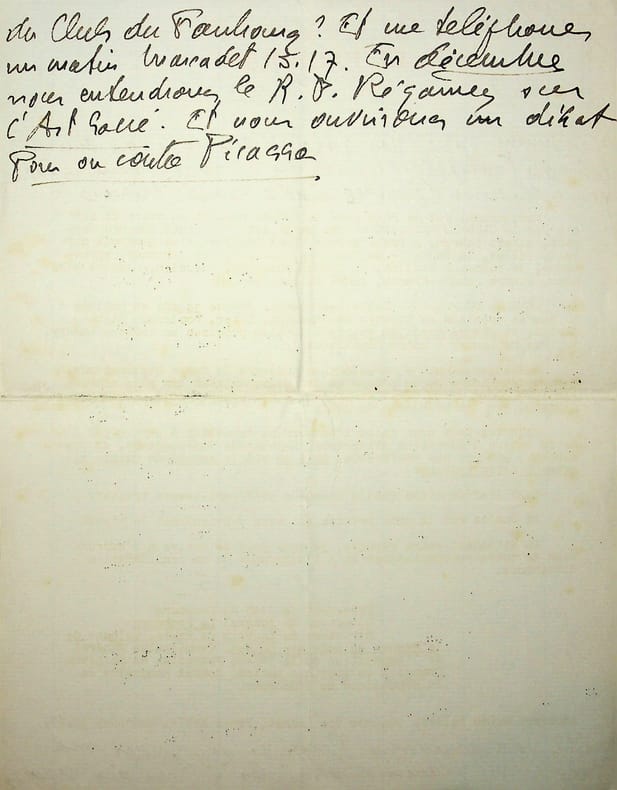 du Club du Faubourg ? Et me téléphoner
un matin Marcadet 15.17. En décembre
nous entendrons le R. P. Régamey sur
l'Art Sacré. Et nous ouvrirons un débat
Pour ou contre Picasso